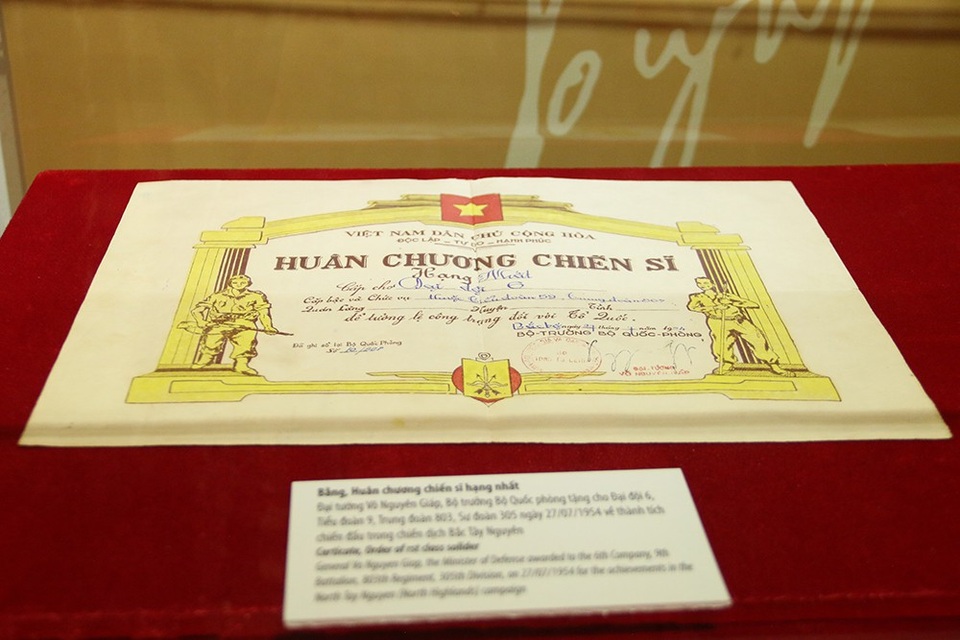 VIỆT NAM DÂN CHỦ CỘNG HÒA
ĐỘC LẬP - TỰ DO - HẠNH PHÚC
HUÂN CHƯƠNG CHIẾN SĨ
Hạng Nhất
Cấp cho Đại đội 6
Cấp bậc và Chức vụ
Quán làng Huyện Tỉnh
để tưởng lệ công trạng đối với Tổ Quốc.
ngày 27 tháng 7 năm 1954
BỘ-TRƯỞNG BỘ QUỐC-PHÒNG
Đã ghi sổ tại Bộ Quốc Phòng
Số
ĐẠI TƯỚNG
VÕ NGUYÊN GIÁP
Bằng, Huân chương chiến sĩ hạng nhất
Đại tướng Võ Nguyên Giáp, Bộ trưởng Bộ Quốc phòng tặng cho Đại đội 6,
Tiểu đoàn 9, Trung đoàn 803, Sư đoàn 305 ngày 27/07/1954 về thành tích
chiến đấu trong chiến dịch Bắc Tây Nguyên
General Vo Nguyen Giap, the Minister of Defense awarded to the 6th Company, 9th
Battalion, 803th Regiment, 305th Division, on 27/07/1954 for the achievements in the
North Tay Nguyen (North Highlands) campaign